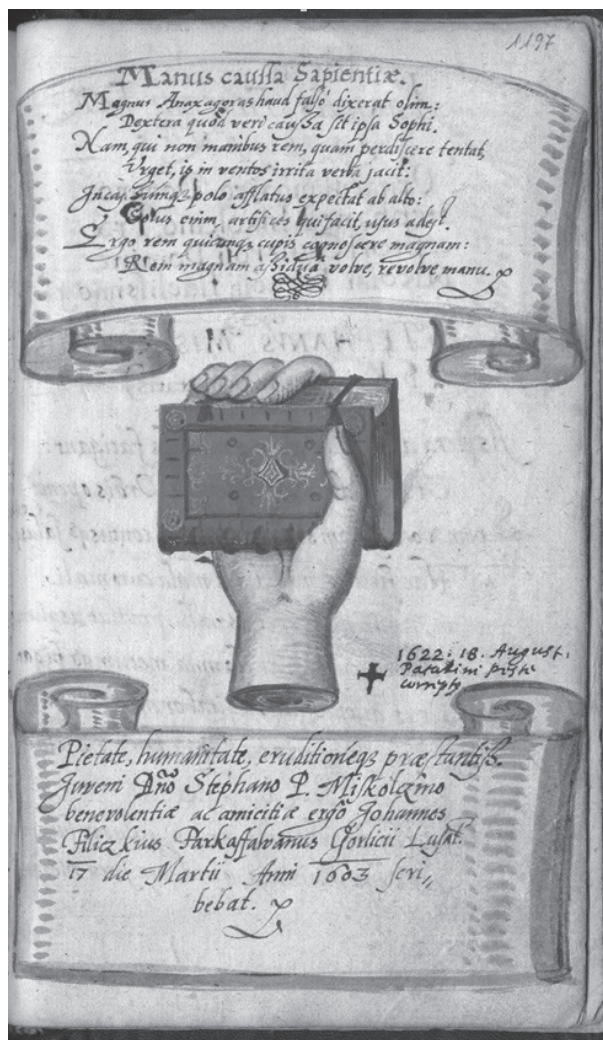 1197
Manus caussa Sapientiæ.
Magnus Anaxagoras haud falsò dixerat olim:
Dextera quòd veri caussa sit ipsa Sophi.
Nam, qui non manibus rem, quam perdiscere tentat,
Urget, is in ventos irrita verba jacit:
polo afflatus expectat ab alto:
Solus enim, artifices qui facit, usus adest.
Ergo rem quicunq; cupis cognoscere magnam:
Rem magnam assiduâ volve, revolve manu.
1622. 18. August.
Patakini peste
correptg
Pietate, humanitate, eruditioneq; præstantiss.
Juveni Dño Stephano P. Miskolczino
benevolentiæ ac amicitiæ ergô Johannes
Filiczkius Farkaffalvanus Gorlicii Lusat.
17 die Martii Anni 1603 scri„
bebat.